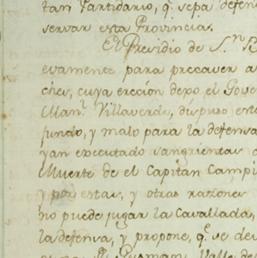 tan Partidario, q.e sepa defen
servar esta Provincia.
El Presidio de S.n B
evamente para precaver a
ches, cuya ereccion dexo el Gove
Man.l Villaverde, dispuso est
fundo, y malo para la defensa
yan executado sangrientas
Muerte de el Capitan Campi
y por estar, y otras razones
no puede jugar la Cavallada,
la defensa, y propone, q.e se de
Valle d